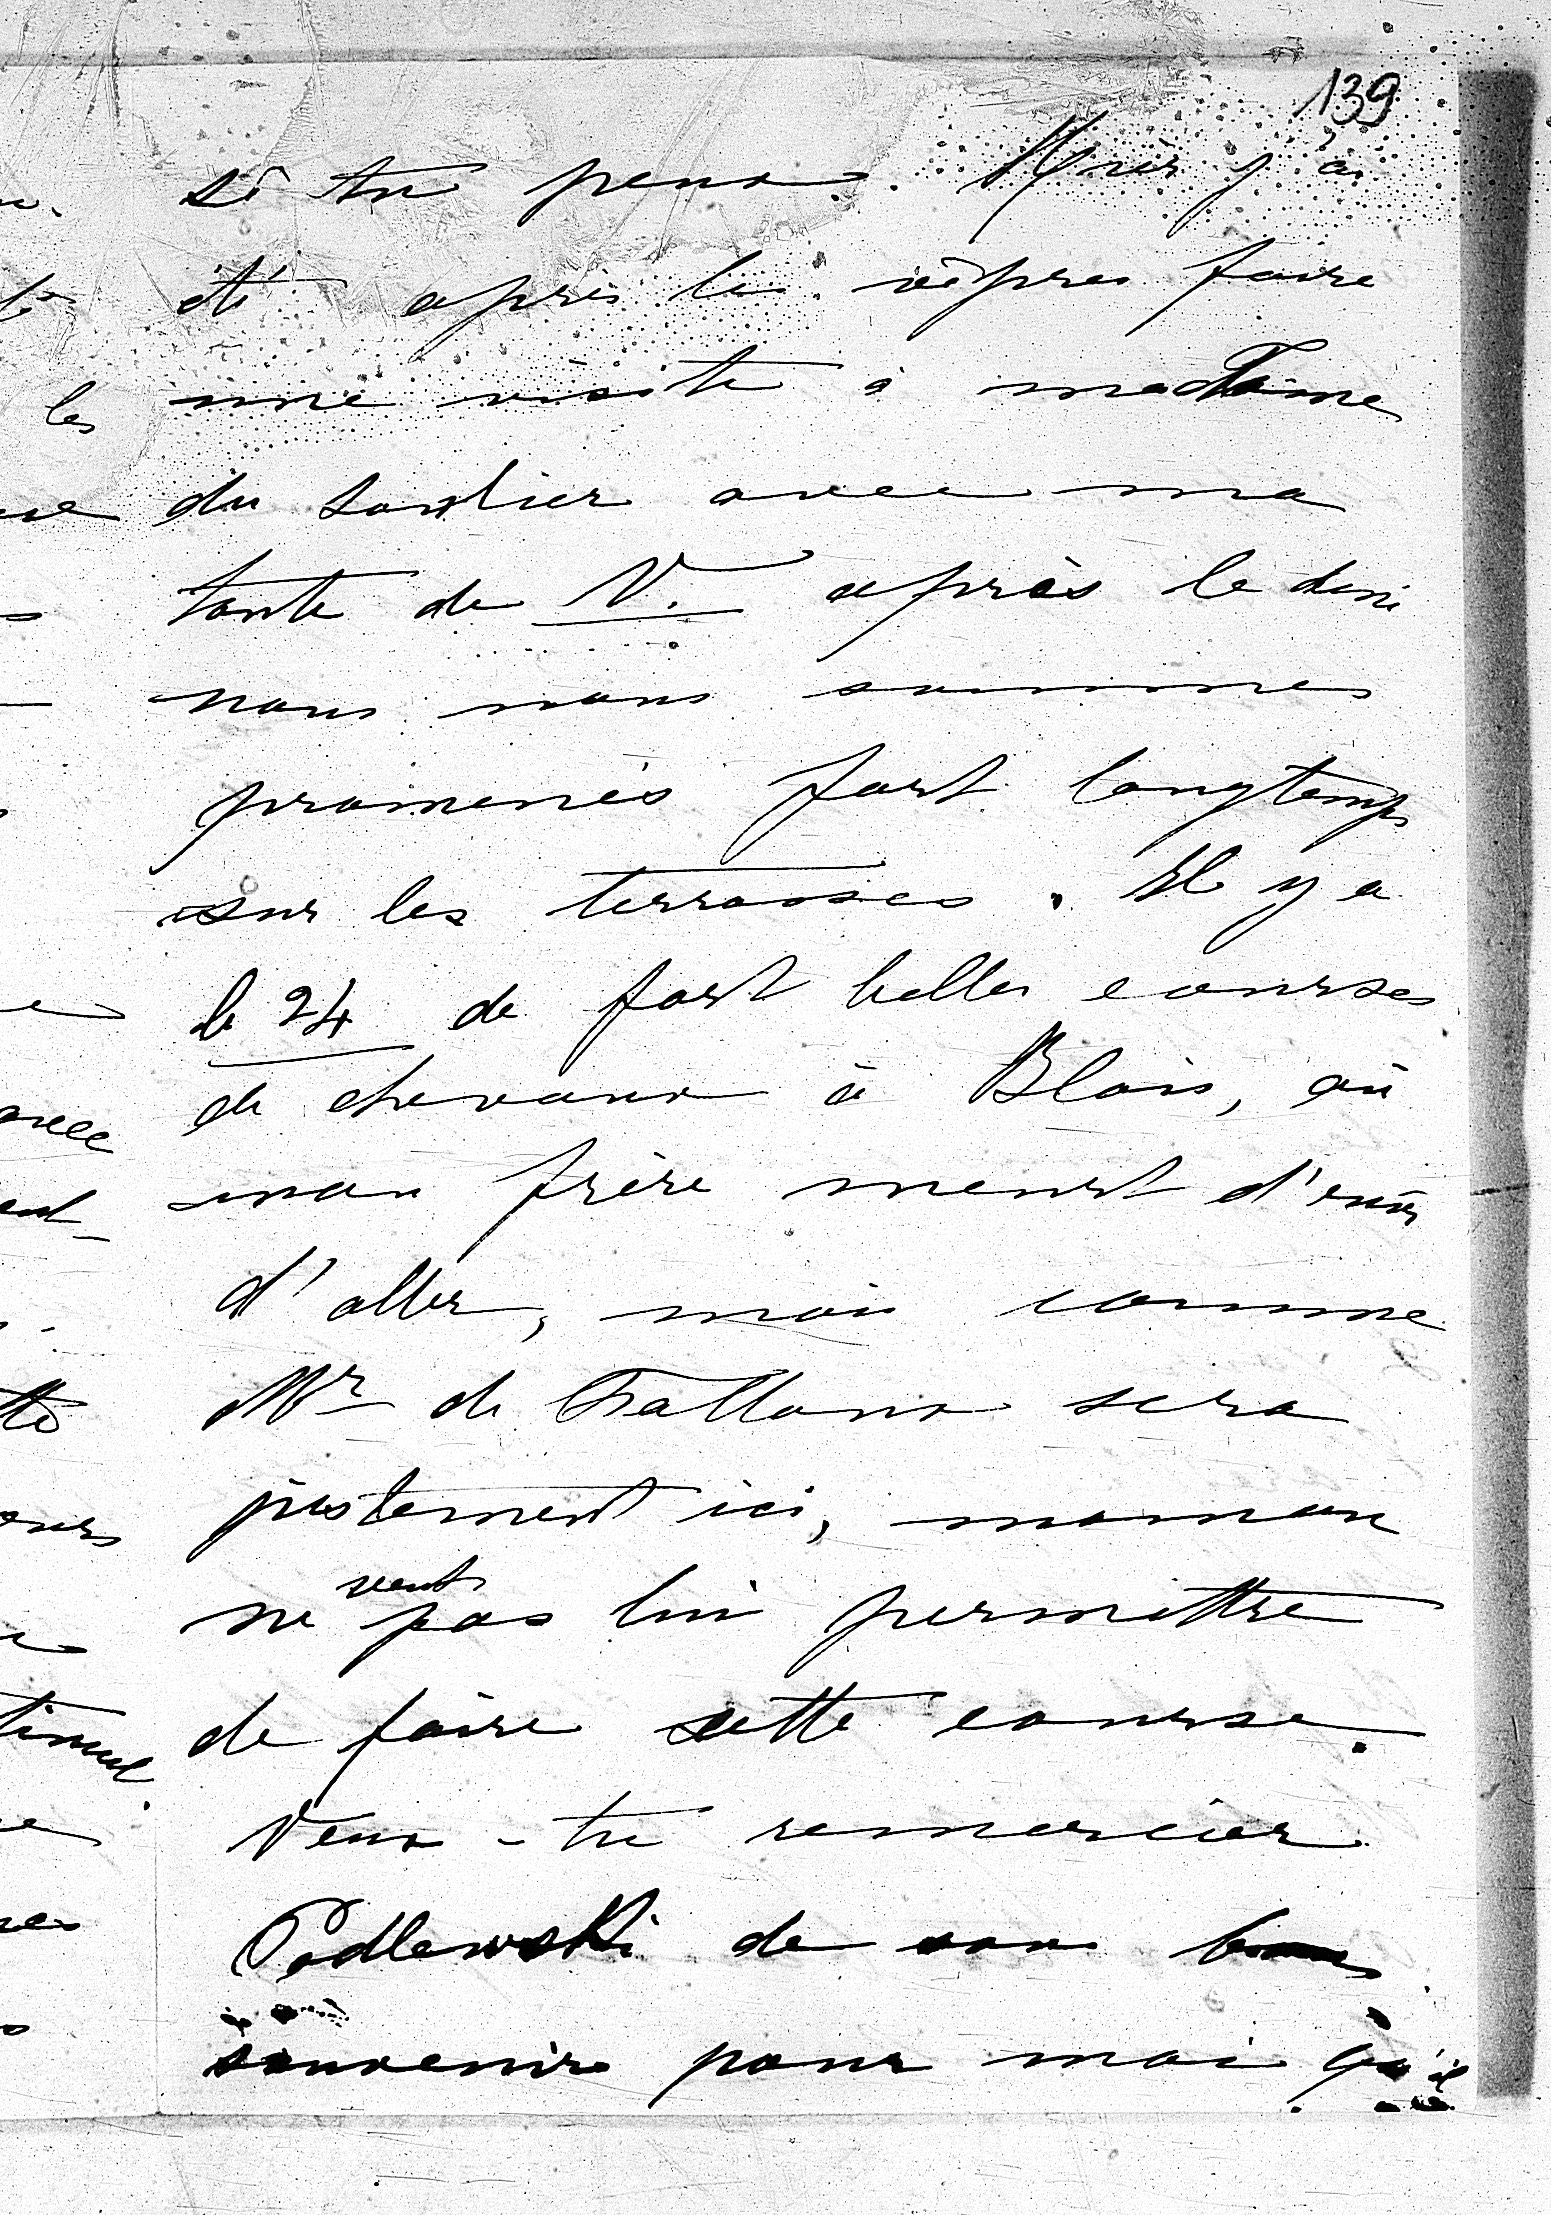 139
si tu peux. Hier j'ai
été après les vêpres faire
une visite à madame
du Sordier avec ma
tante de V. après le diné
nous nous sommes
promenés fort longtemps
sur les terrasses. Il y a
le 24 de fort belles courses
de chevaux à Blois, où
mon frère meurt d'envie
d'aller, mais comme
Mr de Falloux sera
justement ici, maman
ne veut pas lui permettre
de faire cette course.
Veux-tu remercier
Podlewski de son bon
souvenir pour moi qu'il
les
avec